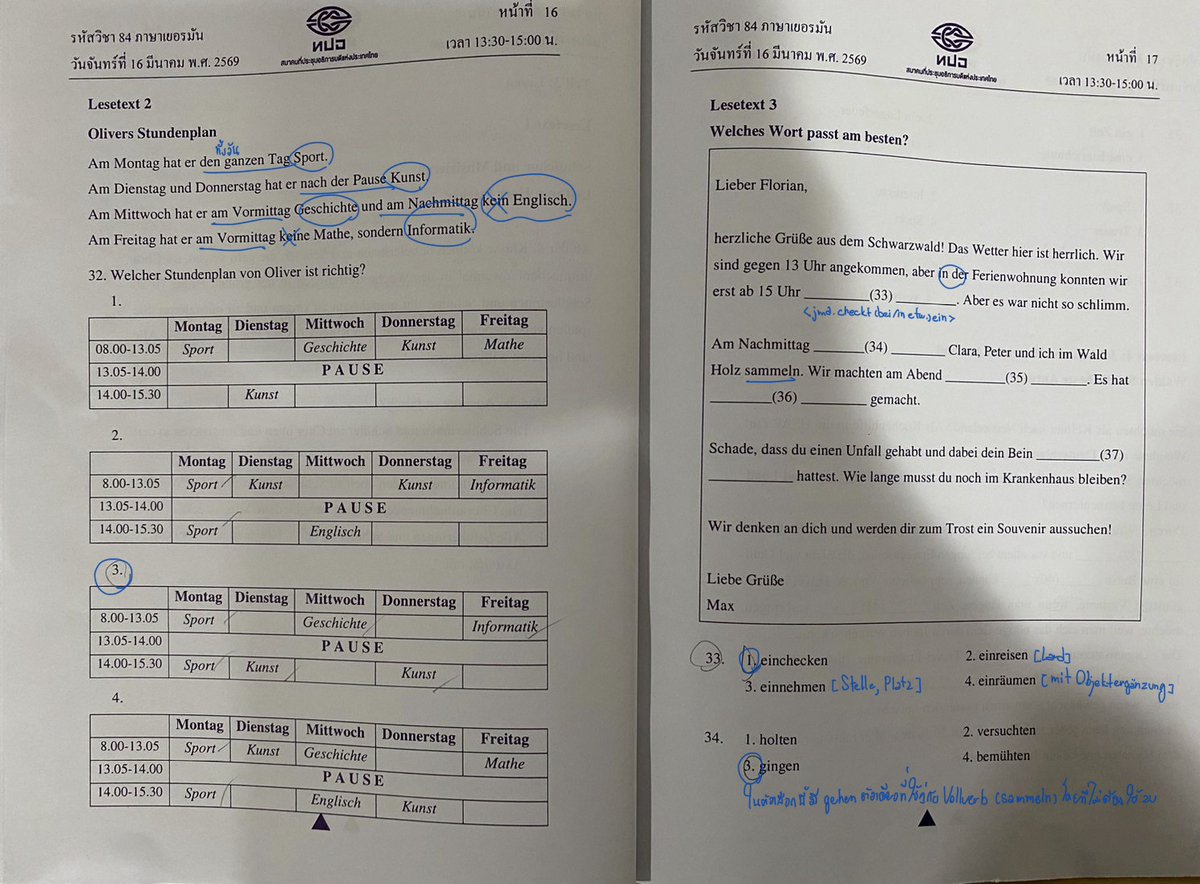 รหัสวิชา 84 ภาษาเยอรมัน
หน้าที่ 16
วันจันทร์ที่ 16 มีนาคม พ.ศ. 2569
เวลา 13:30-15:00 น.
ทปอ
สมาคมที่ประชุมอธิการบดีแห่งประเทศไทย
Lesetext 2
Olivers Stundenplan
ทั้งวัน
Am Montag hat er den ganzen Tag Sport.
Am Dienstag und Donnerstag hat er nach der Pause Kunst.
Am Mittwoch hat er am Vormittag Geschichte und am Nachmittag kein Englisch.
Am Freitag hat er am Vormittag keine Mathe, sondern Informatik.
32. Welcher Stundenplan von Oliver ist richtig?
1.
Montag Dienstag Mittwoch Donnerstag Freitag
08.00-13.05 Sport Geschichte Kunst Mathe
13.05-14.00 PAUSE
14.00-15.30 Kunst
2.
Montag Dienstag Mittwoch Donnerstag Freitag
8.00-13.05 Sport Kunst Kunst Informatik
13.05-14.00 PAUSE
14.00-15.30 Sport Englisch
3.
Montag Dienstag Mittwoch Donnerstag Freitag
8.00-13.05 Sport Geschichte Informatik
13.05-14.00 PAUSE
14.00-15.30 Sport Kunst Kunst
4.
Montag Dienstag Mittwoch Donnerstag Freitag
8.00-13.05 Sport Kunst Geschichte Mathe
13.05-14.00 PAUSE
14.00-15.30 Sport Englisch Kunst
รหัสวิชา 84 ภาษาเยอรมัน
วันจันทร์ที่ 16 มีนาคม พ.ศ. 2569
หน้าที่ 17
เวลา 13:30-15:00 น.
ทปอ
สมาคมที่ประชุมอธิการบดีแห่งประเทศไทย
Lesetext 3
Welches Wort passt am besten?
Lieber Florian,
herzliche Grüße aus dem Schwarzwald! Das Wetter hier ist herrlich. Wir
sind gegen 13 Uhr angekommen, aber in der Ferienwohnung konnten wir
erst ab 15 Uhr ________(33) ________. Aber es war nicht so schlimm.
<jmd. checkt (bei/in etw.) ein>
Am Nachmittag ______(34) ______ Clara, Peter und ich im Wald
Holz sammeln. Wir machten am Abend _______(35) _______. Es hat
_______(36) ________ gemacht.
Schade, dass du einen Unfall gehabt und dabei dein Bein ________(37)
_________ hattest. Wie lange musst du noch im Krankenhaus bleiben?
Wir denken an dich und werden dir zum Trost ein Souvenir aussuchen!
Liebe Grüße
Max
33. 1. einchecken 2. einreisen [Land]
3. einnehmen [Stelle, Platz] 4. einräumen [mit Objektergänzung]
34. 1. holten 2. versuchten
3. gingen 4. bemühten
ในตัวเลือกนี้มี gehen ตัวเดียวที่ใช้กับ Vollverb (sammeln) โดยที่ไม่ต้องใช้